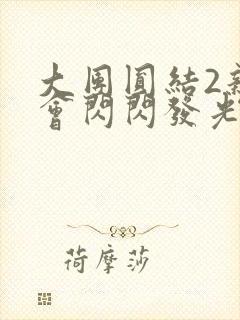 大團圓結2新
會閃閃發光
荷摩莎